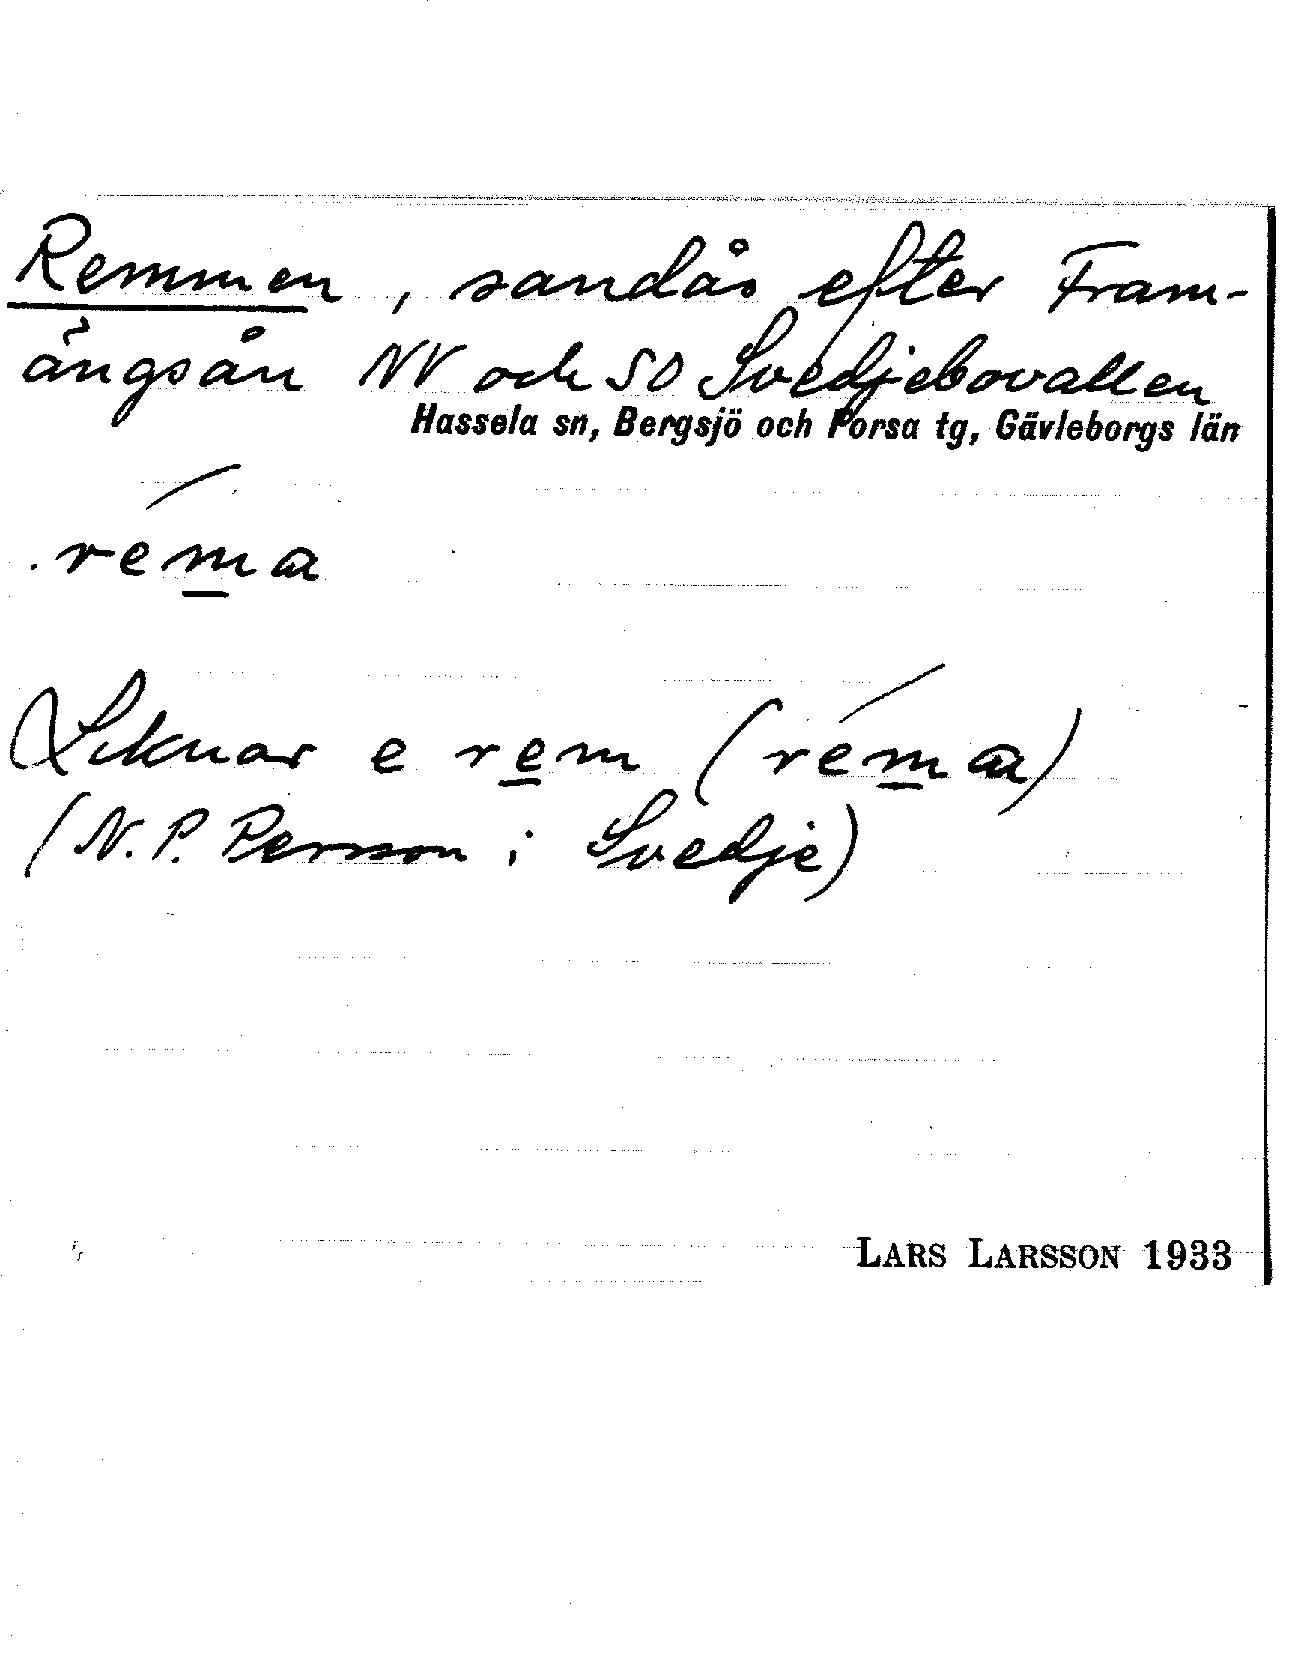 Remmen, sandås efter Fram-
ängsån NV och SO Svedjebovallen
Hassela sn, Bergsjö och Forsa tg, Gävleborgs län
réma
Liknar e rem (réma)
(N. P. Persson i Svedje)
LARS LARSSON 1933